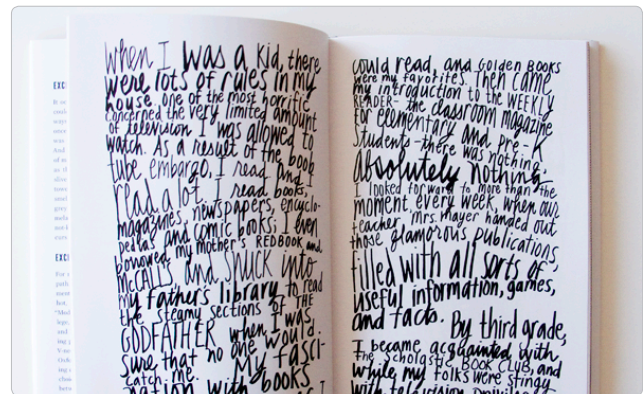 When I was a kid, there
were lots of rules in my
house. One of the most horrific
concerned the very limited amount
of television I was allowed to
watch. As a result of the boob
tube embargo, I read and I
read a lot. I read books,
magazines, newspapers, encyclo-
pedias and comic books; I even
borrowed my mother's REDBOOK and
McCALLS and snuck into
my father's library to read
the steamy sections of THE
GODFATHER when I was
sure that no one would
catch me. My fasci-
nation with books
could read, and GOLDEN BOOKS
were my favorites. Then came
my introduction to the WEEKLY
READER- the classroom magazine
for elementary and pre-K
students-there was nothing,
absolutely nothing
I looked forward to more than the
moment every week, when our
teacher, Mrs. Mayer handed out
those glamorous publications,
filled with all sorts of
useful information, games,
and facts. By third grade,
I became acquainted with
the SCHOLASTIC BOOK CLUB, and
while my folks were stingy
with television